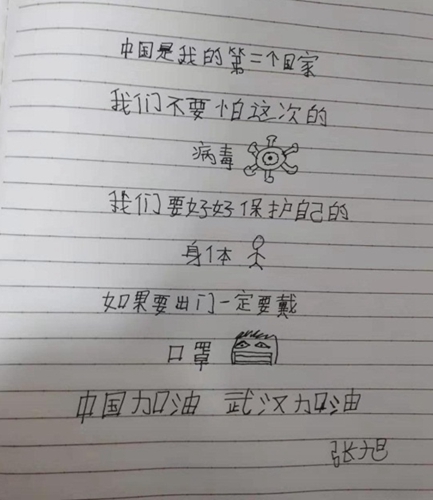 中国是我的第二个国家
我们不要怕这次的
病毒
我们要好好保护自己的
身体
如果要出门一定要戴
口罩
中国加油 武汉加油
张旭